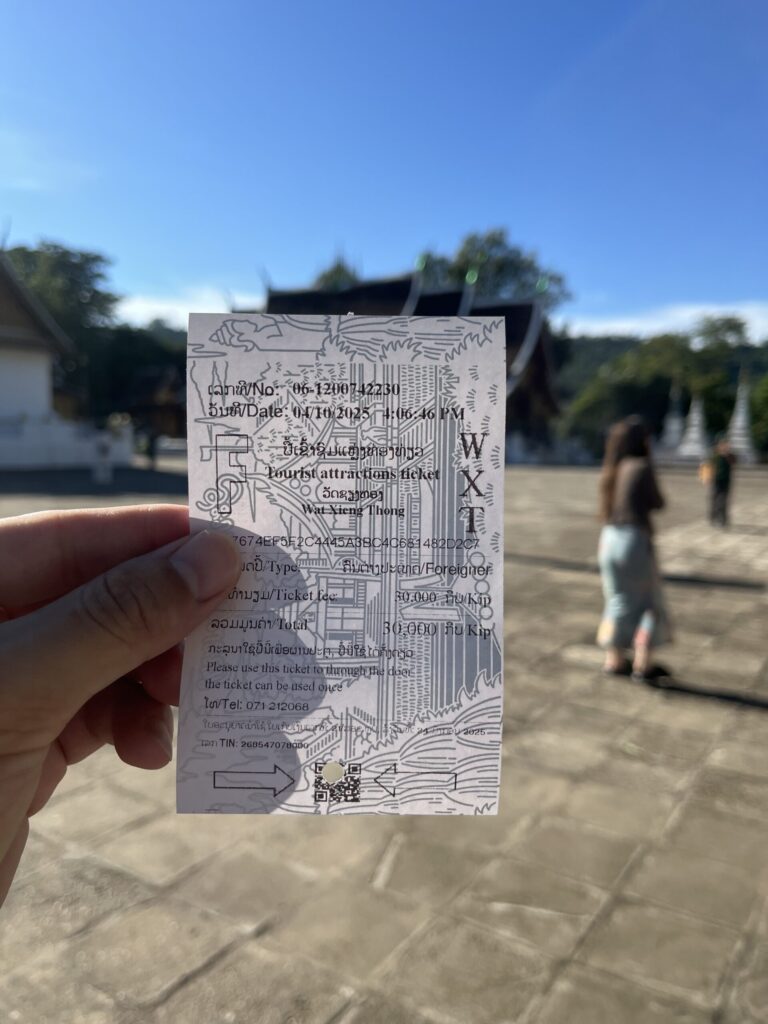 ເລກທີ/No: 06-1200742230
ວັນທີ/Date: 04/10/2025 4:06:46 PM
ປີ້ເຂົ້າຊົມແຫຼ່ງທ່ອງທ່ຽວ
Tourist attractions ticket
ວັດຊຽງທອງ
Wat Xieng Thong
WXT
7674EF5F2C4445A3BC4C681482D2C7
/Type: ຄົນຕ່າງປະເທດ/Foreigner
/Ticket fee: 30,000 ກີບ/Kip
ລວມມູນຄ່າ/Total 30,000 ກີບ/Kip
ກະລຸນາໃຊ້ປີ້ນີ້ເພື່ອຜ່ານປະຕູ, ປີ້ນີ້ໃຊ້ໄດ້ຄັ້ງດຽວ
Please use this ticket to through the door
the ticket can be used once
ໂທ/Tel: 071 212068
2025
ເລກ TIN: 268547078000